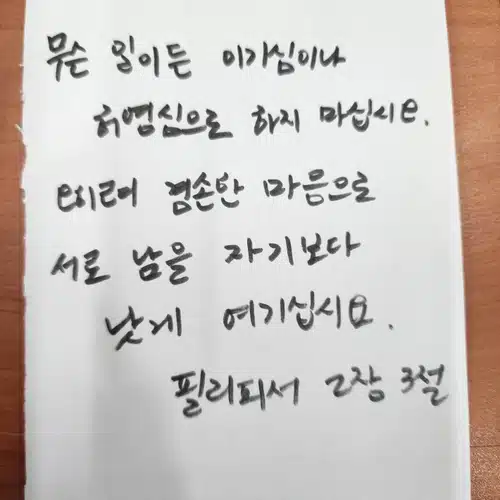 무슨 일이든 이기심이나
허영심으로 하지 마십시오.
오히려 겸손한 마음으로
서로 남을 자기보다
낫게 여기십시오.
필리피서 2장 3절